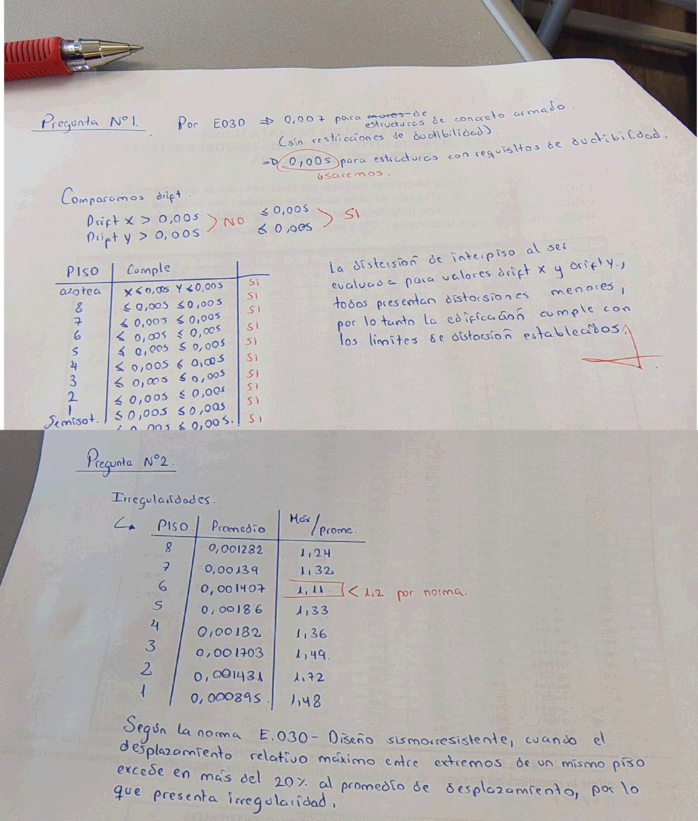 Pregunta N°1. Por E030 ⇒ 0,007 para estructuras de concreto armado.
(sin restricciones de ductibilidad)
⇒ 0,005 para estructuras con requisitos de ductibilidad.
usaremos.
Comparamos drift.
Drift x > 0,005 > NO ≤ 0,005 > SI
Dript y > 0,005 ≤ 0,005
PISO Comple
azotea x≤0,005 Y≤0,005 SI
8 ≤ 0,005 ≤0,005 SI
7 ≤ 0,005 ≤ 0,005 SI
6 ≤ 0,005 ≤ 0,005 SI
5 ≤ 0,005 ≤ 0,005 SI
4 ≤ 0,005 ≤ 0,005 SI
3 ≤ 0,005 ≤ 0,005 SI
2 ≤ 0,005 ≤ 0,005 SI
1 ≤ 0,005 ≤ 0,005 SI
Semisot. ≤ 0,005 ≤ 0,005. SI
La distersión de interpiso al ser
evaluada para valores drift x y drift y,
todos presentan distorsiones menores,
por lo tanto la edificación cumple con
los limites de distorsión establecidos.
Pregunta N°2.
Irregularidades.
PISO Promedio Máx/prome.
8 0,001282 1,24
7 0,00139 1,32
6 0,001407 1,11 < 1.2 por norma.
5 0,00186 1,33
4 0,00182 1,36
3 0,001703 1,49.
2 0,001431 1,72
1 0,000895. 1,48
Según la norma E.030 - Diseño sismorresistente, cuando el
desplazamiento relativo máximo entre extremos de un mismo piso
excede en más del 20% al promedio de desplazamiento, por lo
que presenta irregularidad.